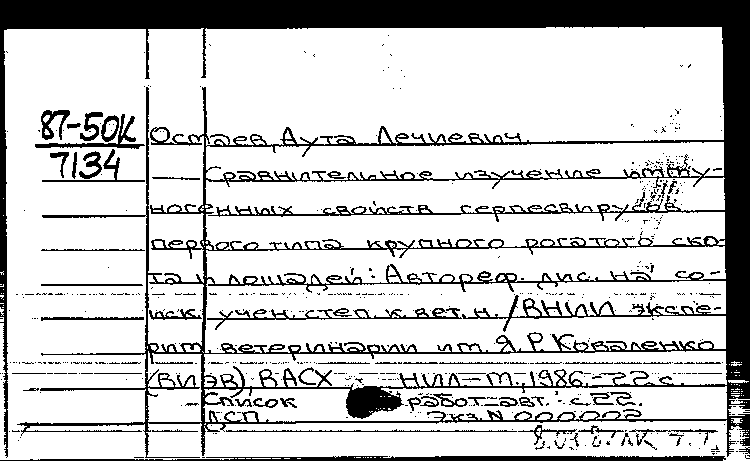 87-50К
7134
Остаев, Аута Лечиевич.
Сравнительное изучение имму-
ногенных свойств герпесвирусов
первого типа крупного рогатого ско-
та и лошадей: Автореф. дис. на со-
иск. учен. степ. к. вет. н. /ВНИИ экспе-
рим. ветеринарии им. Я.Р. Коваленко
(ВИЭВ), ВАСХНИЛ – М., 1986. – 22 с.
– Список работ авт.: с. 22.
ДСП. Экз. N 000002.